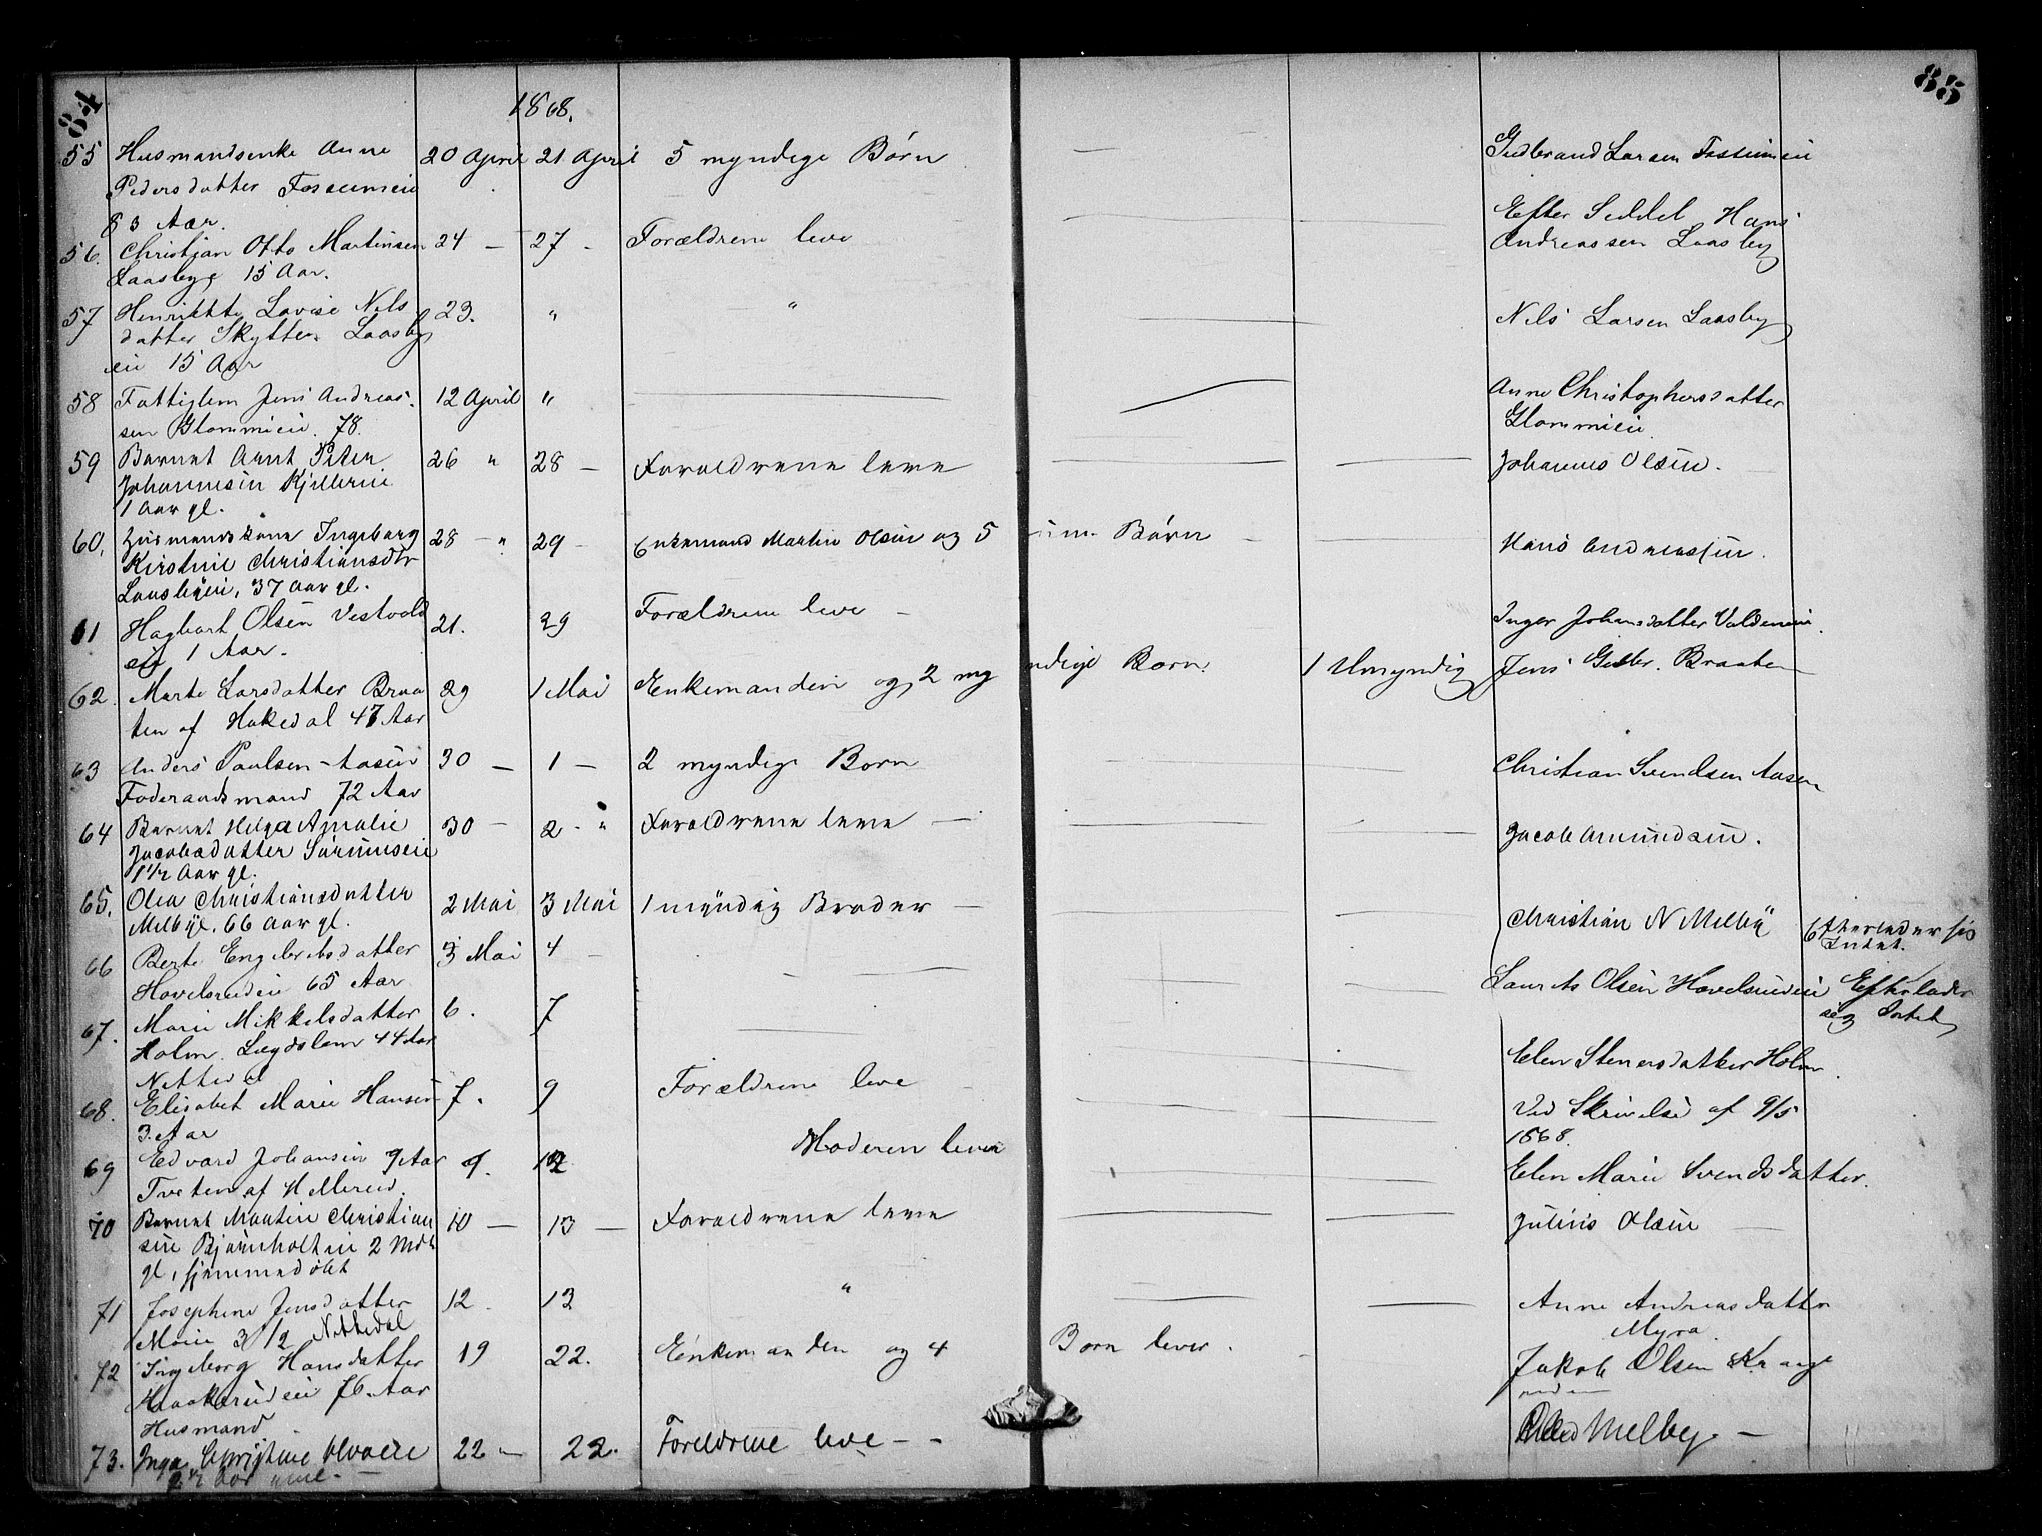 84
1868.
85
55 Husmandsenke Anne 20 April 21 April 5 myndige Børn — Gudbrand Larsen Fossumeie
Pedersdatter Fossumeie
83 Aar.
56. Christian Otto Martinsen 24 — 27 - Forældrene leve — Efter Seddel Hans
Laasbye 15 Aar. Andreassen Laasby
57 Henriktte Lovise Nels 23. " " — Nels Larsen Laasby
datter Skytten Laasby
eie 15 Aar
58 Fattiglem Jens Andreas- 12 April " — Anne Christophersdatter
sen Glommeie. 78. Glommeie
59 Barnet Arnt Peter 26 " 28 — Forældrene leve — Johannes Olsen.
Johannesen Kjellereie
1 Aar gl.
60. Husmandskone Ingeborg 28 - " 29 - Enkemand Martin Olsen og 5 um. Børn — Hans Andreassen.
Kirstine Christiansdtr
Laasbyeie, 37 Aar gl.
61 Hagbart Olsen Vestvold 21. 29 Forældrene leve — Inger Johansdatter Voldeneie.
eie 1 Aar.
62. Marte Larsdatter Braa 29 1 Mai Enkemanden og 2 myndige Børn. 1 Umyndig Jens Gulbr. Braaten
ten af Hakedal 47 Aar
63 Anders Paulsen Aasen 30 — 1 — 2 myndige Børn — Christian Svendsen Aasen
Føderaadsmand 72 Aar
64 Barnet Helga Amalie 30 — 2 - " Forældrene leve — Jacob Amundsen.
Jacobsdatter
1 1/2 Aar gl.
65. Olea Christiansdatter 2 Mai 3 Mai 1 myndig Broder — Christian N Melby Efterlader sig
Melbye. 66 Aar gl. Intet.
66 Berte Engebretsdatter 3 Mai 4 — Laurits Olsen Havelsrudeie Efterlader
Havelsrudeie 65 Aar seg Intet
67. Marie Mikkelsdatter 6. 7 — Elen Stenersdatter Holm
Holm. Lægdslem 44 Aar
Nittedal
68. Elisabet Marie Hansen 7. 9 Forældrene leve — Ved Skrivelse af 9/5
3. Aar 1868.
69 Edvard Johansen 7 Aar 9. 12 Moderen lever — Elen Marie Svendsdatter.
Tveten af Hellerud.
70 Barnet Martin Christian 10 — 13 — Forældrene leve — Julius Olsen —
sen Bjørnholteie 2 Mdr
gl, hjemmedøbt
71 Josephine Jensdatter 12. 13 " — Anne Andreasdatter
Moeie 3 1/2 Nittedal Myra.
72 Ingeborg Hansdatter 19 22. Enkemanden og 4 Børn lever. Jakob Olsen
Haakerudeie 76. Aar
Husmand
73. Inga Christine 22 — 22. Foreldrene leve — - Melby. —
2 1/2 Aar